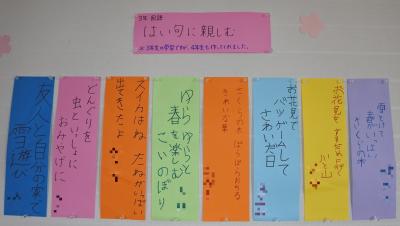 3年 国語
はい句に親しむ
※3年生の学習ですが、4年生も作ってくれました。
友人と自分の家で
雪遊び
どんぐりを
虫といっしょに
おみやげに
スイカはね たねがいっぱい
出てきたよ
ゆらゆらと
春を楽しむ
こいのぼり
さくらの木
お花見で
バツゲームして
さわいだ日
お花見を
川と山
雪とけて
春がいっぱい
さくらの木